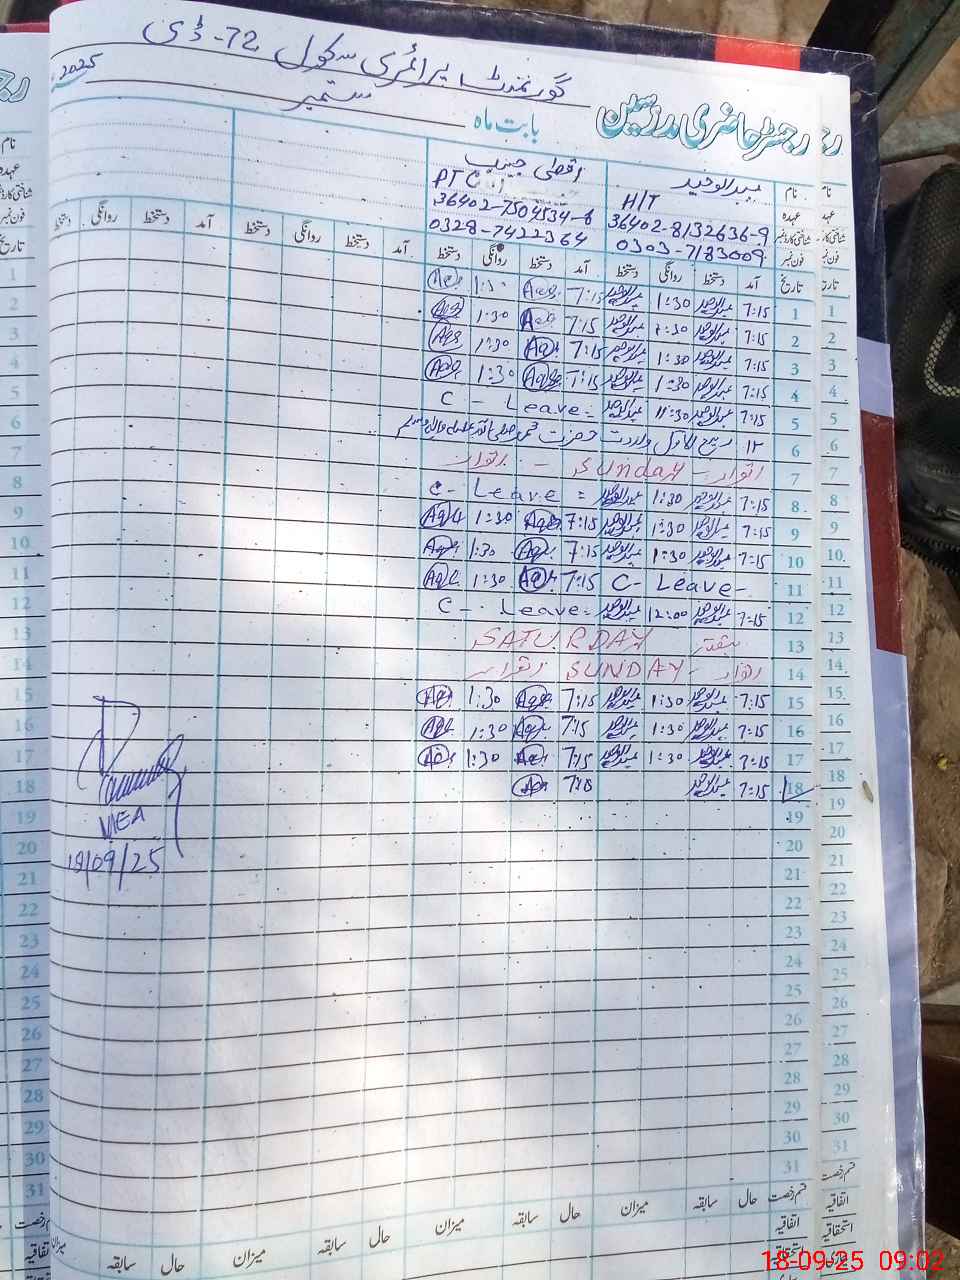 گورنمنٹ پرائمری سکول 72-ڈی
رجسٹر حاضری مدرسین بابت ماہ ستمبر 2025
نام عبدالوحید اقصیٰ حبیب
عہدہ H/T PTC
شناختی کارڈ نمبر 36402-8132636-9 36402-7504534-8
فون نمبر 0303-7183009 0328-7422364
تاریخ آمد دستخط روانگی دستخط آمد دستخط روانگی دستخط آمد دستخط روانگی دستخط آمد دستخط روانگی دستخط
1 7:15 عبدالوحید 1:30 عبدالوحید 7:15 1:30
2 7:15 عبدالوحید 1:30 عبدالوحید 7:15 1:30
3 7:15 عبدالوحید 1:30 عبدالوحید 7:15 1:30
4 7:15 عبدالوحید 1:30 عبدالوحید 7:15 1:30
5 7:15 عبدالوحید 11:30 عبدالوحید C - Leave -
6 ١٢ ربیع الاول ولادت حضرت محمد صلی اللہ علیہ وآلہ وسلم
7 اتوار - Sunday - اتوار
8 7:15 عبدالوحید 1:30 عبدالوحید C - Leave =
9 7:15 عبدالوحید 1:30 عبدالوحید 7:15 1:30
10 7:15 عبدالوحید 1:30 عبدالوحید 7:15 1:30
11 C - Leave - 7:15 1:30
12 7:15 عبدالوحید 12:00 عبدالوحید C - Leave =
13 ہفتہ SATURDAY
14 اتوار - SUNDAY اتوار
15 7:15 عبدالوحید 1:30 عبدالوحید 7:15 1:30
16 7:15 عبدالوحید 1:30 عبدالوحید 7:15 1:30
17 7:15 عبدالوحید 1:30 عبدالوحید 7:15 1:30
18 7:15 عبدالوحید
19
20
21
22
23
24
25
26
27
28
29
30
31
MEA
18/09/25
قسم رخصت حال سابقہ میزان حال سابقہ میزان حال سابقہ میزان حال سابقہ میزان
اتفاقیہ
استحقاقیہ
18-09-25 09:02